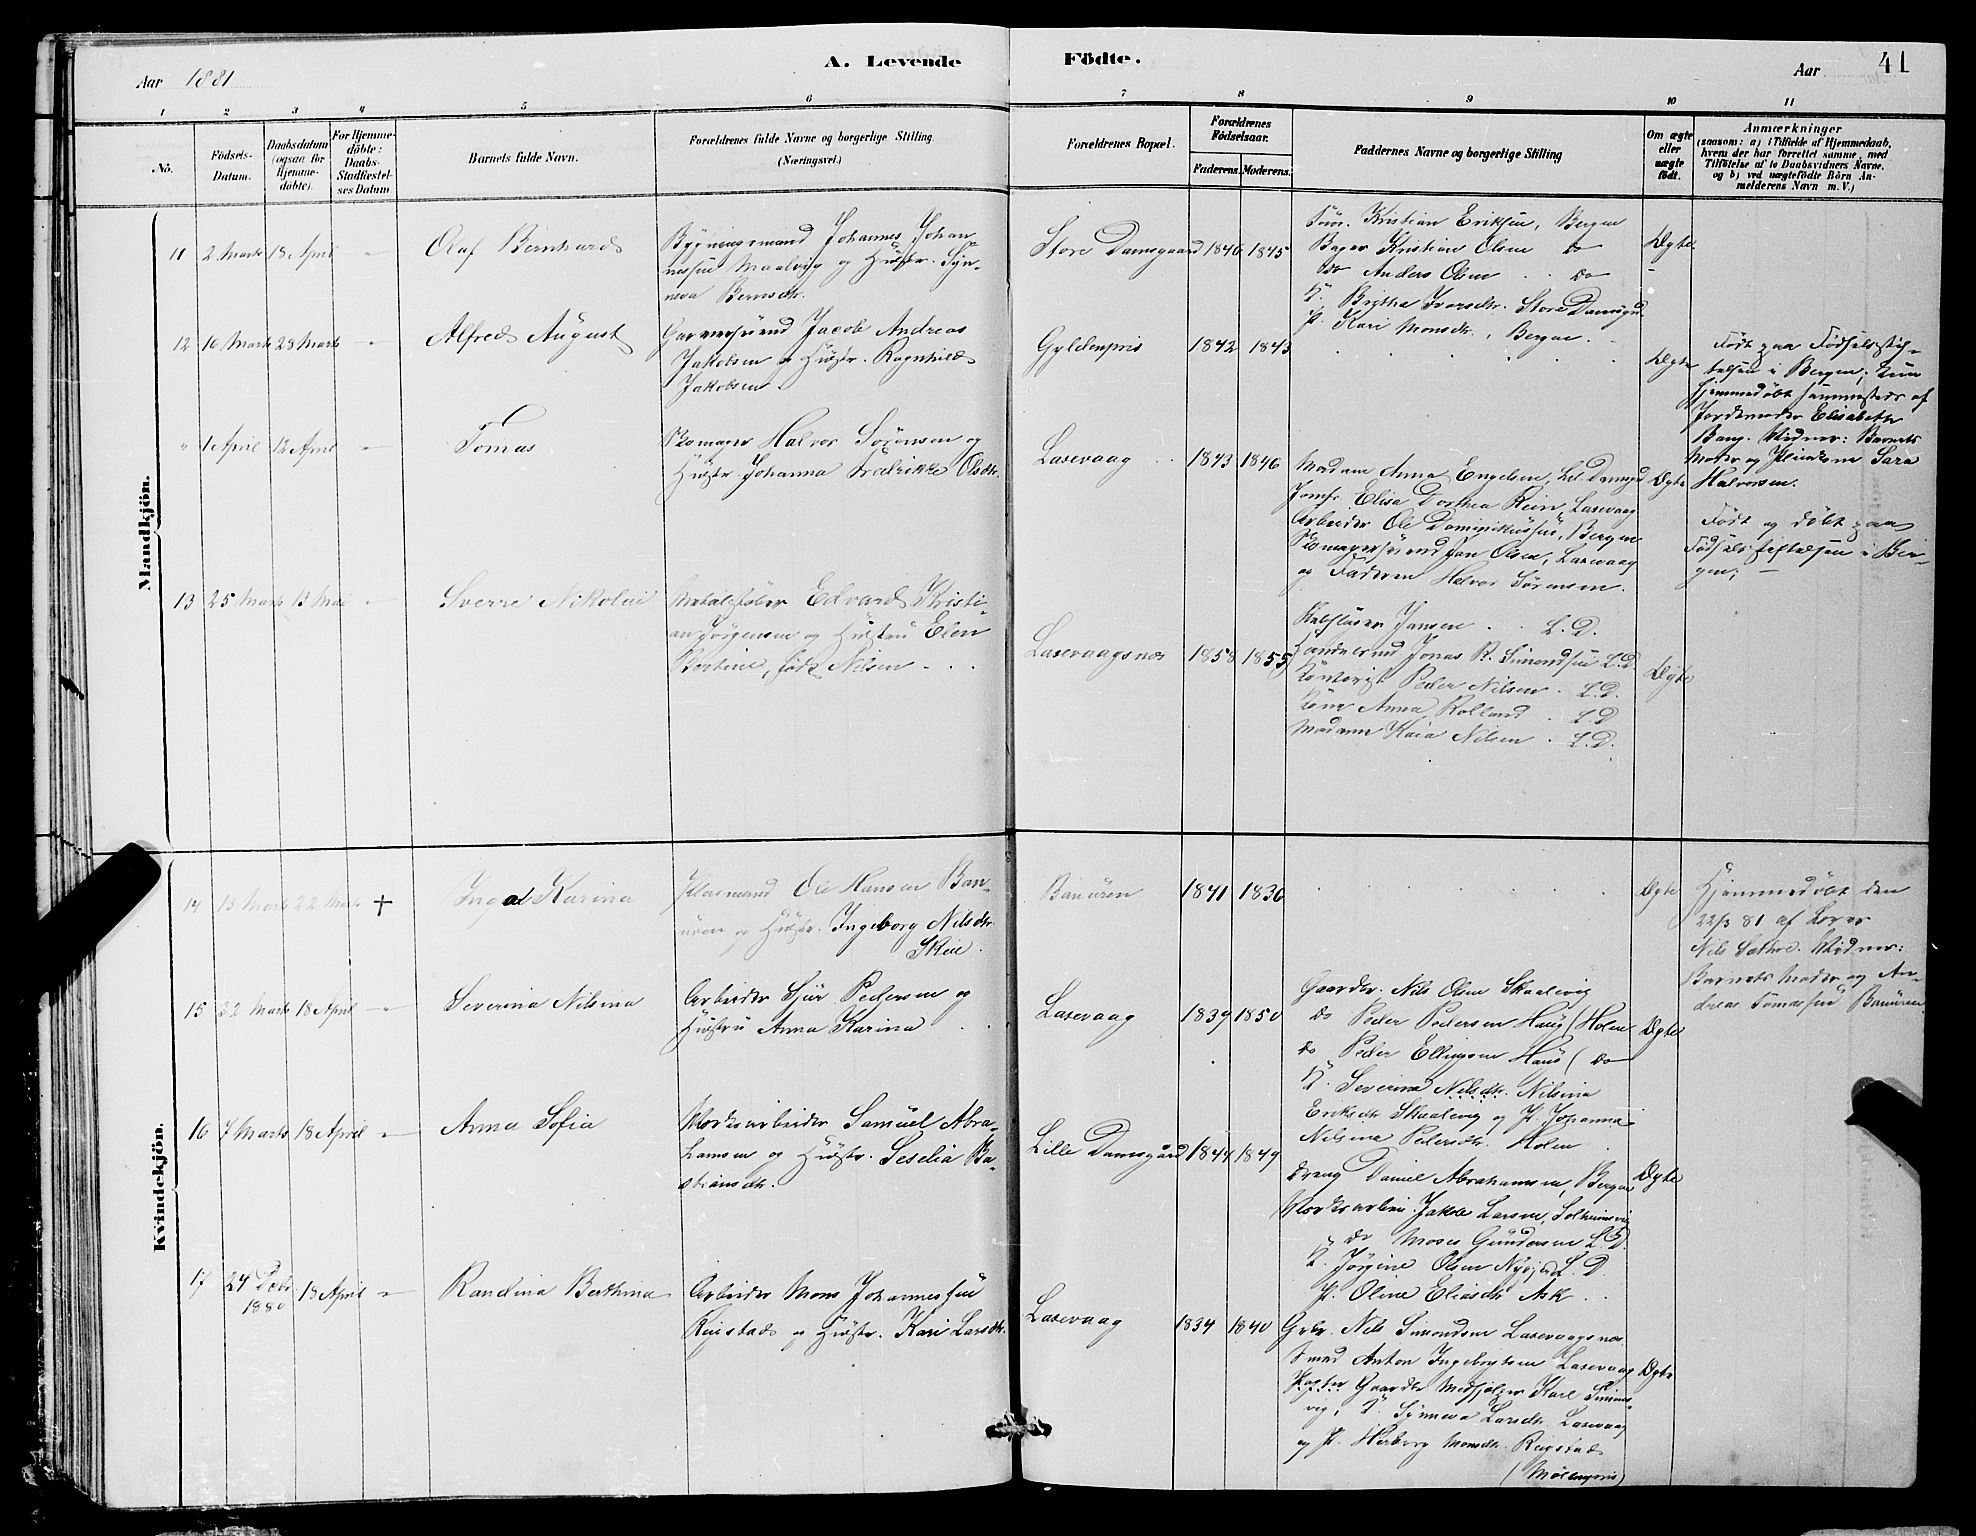 Aar 1881
A. Levende Födte.
Aar
41
1 2 3 4 5 6 7 8 9 10 11
No.
Födsels-
Datum.
Daabsdatum
(ogsaa for
Hjemme-
döbte).
For Hjemme-
döbte:
Daabs-
Stadfestel-
ses Datum
Barnets fulde Navn.
Forældrenes fulde Navne og borgerlige Stilling
(Næringsvei.)
Forældrenes Bopæl.
Forældrenes
Födselsaar.
Faderens. Moderens.
Faddernes Navne og borgerlige Stilling
Om ægte
eller
uægte
födt.
Anmærkninger
(saasom: a) i Tilfælde af Hjemmedaab,
hvem der har forrettet samme, med
Tilföielse af to Daabsvidners Navne,
og b) ved uægtefödte Börn An-
melderens Navn m. V.)
Mandkjön.
11 2 Marts 18 April "
Olaf Bernhard
Bygningsmand Johannes Johan
nesen Maalvig og Hustr. Syn-
neva Bernsdtr.
Store Damsgaard 1846 1845
Kristian Eriksen, Bergen
Bager Kristian Olsen do
do Anders Olsen do
K. Brithe Ivarsdtr. Store Damsgd
P. Kari Monsdtr., Bergen
Ægte
12 16 Marts 28 Marts "
Alfred August
Garversvend Jacob Andreas
Jakobsen og Hustr. Ragnhild
Jakobsen
Gyldenpris 1842 1843
Ægte
Født paa Fødselsstif-
telsen i Bergen; Kun
hjemmedøbt sammesteds af
Jordemoder Elisabeth
Bang. Vidner: Barnets
Moder og Sara
Halvorsen.
" 1 April 12 April "
Tomas
Skomager Halvor Sörensen og
Hustr. Johanna Fredrikke Olsdtr.
Laxevaag 1843 1846
Madam Anna Engelsen, Lil. Damsgd
Jomfr. Elisa Dorthea Rein, Laxevaag
Arbeider Ole Dominikussen, Bergen
Skomagersvend Jan Olsen, Laxevaag
og Faderen Halvor Sörensen.
Ægte
Født og døbt paa
Fødselsstiftelsen i Ber-
gen; —
13 25 Marts 13 Mai "
Sverre Nikolai
Edvard Kristi-
an Jörgensen og Hustru Elen
Bertine, født Nilsen
Laxevaagsnes 1858 1855
Jansen L.D.
Jonas R. Simondsen L.D
Kontorist Peder Nilsen L.D.
Kone Anna Rolland L.D
Madam Kaia Nilsen L.D.
Ægte
Kvindekjön.
14 13 Marts 22 Marts +
Inga Karina
Pladsmand Ole Hansen Ban-
üren og Hustr. Ingeborg Nilsdtr.
Skeie.
Banüren 1841 1836
Ægte
Hjemmedøbt den
22/3 81 af Lærer
Nils Sæthre. Vidner:
Barnets Moder og An-
dreas Tomassen Banüren
15 22 Marts 18 April "
Severina Nilsina
Arbeider Sjur Pedersen og
Hustru Anna Karina
Laxevaag 1839 1850
Gaardbr. Nils Olsen Skaalevig
do Peder Pedersen Haug (Holen
do Peder Ellingsen Haug (do
K. Severina Nilsdtr. Nilsina
Eriksdtr Skaalevig og P. Johanna
Nilsina Pedersdtr. Holen
Ægte
16 7 Marts 18 April "
Anna Sofia
Værksarbeider Samuel Abra-
hamsen og Hustr. Seselia Ba-
stiansdtr.
Lille Damsgård 1844 1849
Dreng Daniel Abrahamsen, Bergen
Værksarbeid. Jakob Larsen, Solheimsvig
do Moses Gundersen L D.
K. Jørgine Olsen Nygjerd L.D.
P. Oline Eliasdtr Ask
Ægte
17 24 Decbr
1880 18 April "
Randina Berthina
Arbeider Mons Johannessen
Reistad og Hustr. Kari Larsdtr.
Laxevaag 1834 1840
Gbr. Nils Simondsen Laxevaagsnes
Smed Anton Ingebrigtsen Laxevaag
Gaardbr Karl Simons-
vig, K. Synneva Larsdtr. Laxevaag
og P. Herborg Monsdtr. Reistad
(Möllenpris)
Ægte